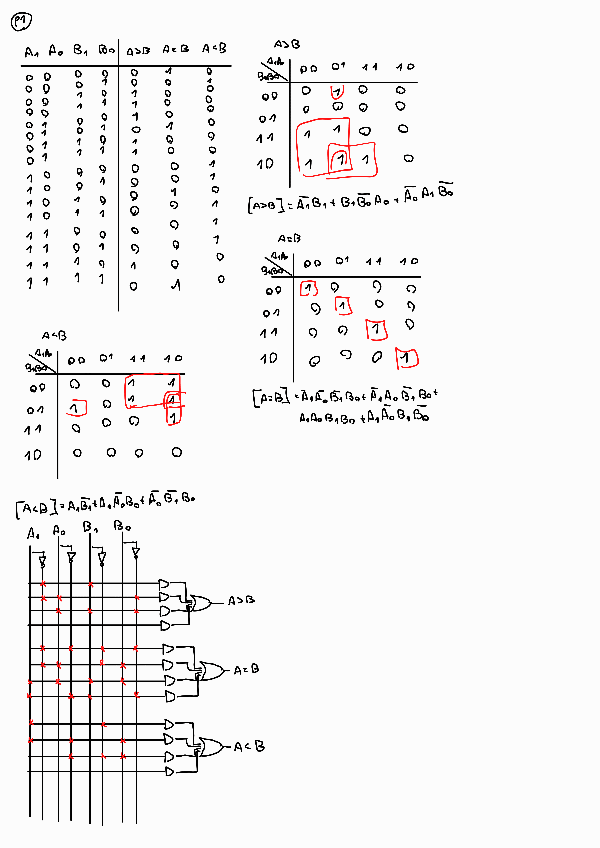 P1
A₁ A₀ B₁ B₀ A>B A=B A<B
0 0 0 0 0 1 0
0 0 0 1
0 0 1 0
0 0 1 1
0 1 0 0
0 1 0 1 0 1 0
0 1 1 0
0 1 1 1
1 0 0 0
1 0 0 1
1 0 1 0 0 1 0
1 0 1 1
1 1 0 0 0 0 1
1 1 0 1 0 0 1
1 1 1 0
1 1 1 1 0 1 0
A>B
A₁A₀
B₁B₀ 00 01 11 10
00 0 1 0 0
01 0 0 0 0
11 1 1 0 0
10 1 1 1 0
[A>B] = A̅₁B₁ + B₁B̅₀A̅₀ + A̅₀A₁B̅₀
A=B
A₁A₀
B₁B₀ 00 01 11 10
00 1 0 0 0
01 0 1 0 0
11 0 0 1 0
10 0 0 0 1
[A=B] = A̅₁A̅₀B̅₁B̅₀ + A̅₁A₀B̅₁B₀ +
A₁A₀B₁B₀ + A₁A̅₀B₁B̅₀
A<B
A₁A₀
B₁B₀ 00 01 11 10
00 0 0 1 1
01 1 0 1 1
11 0 0 0 1
10 0 0 0 0
[A<B] = A₁B̅₁ + A₁A̅₀B₀ + A̅₀B̅₁B₀
A₁ A₀ B₁ B₀
A>B
A=B
A<B